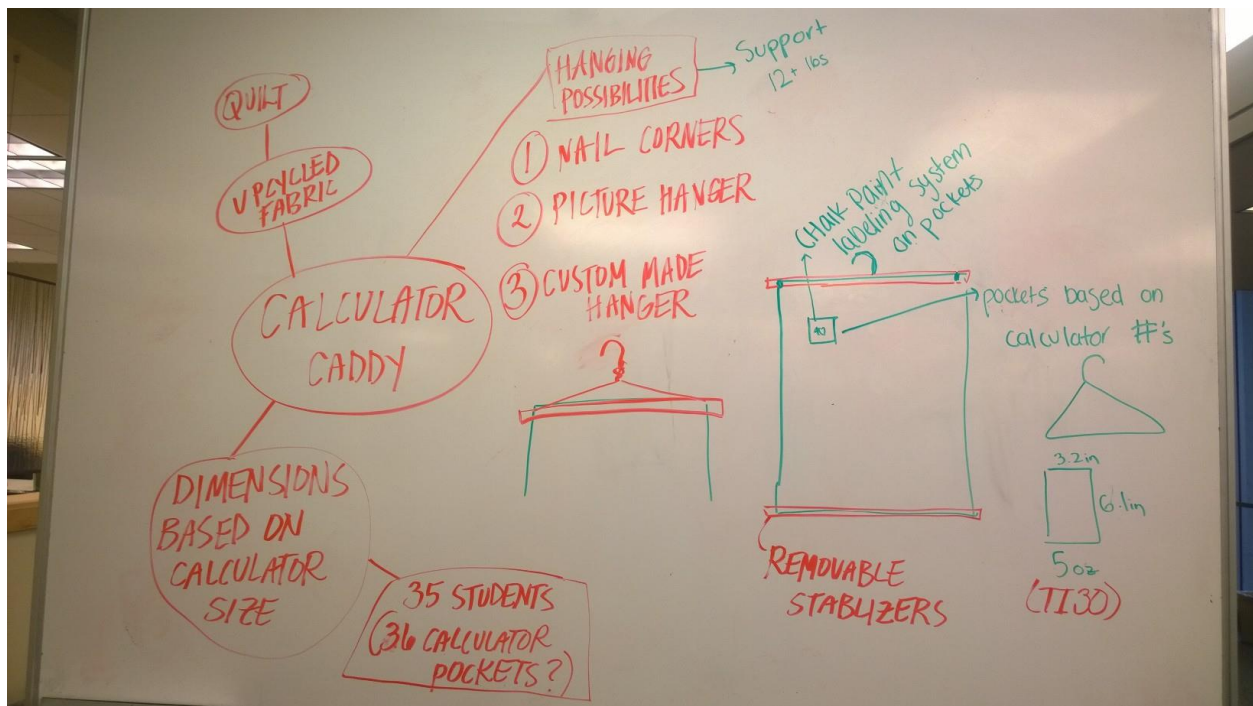 QUILT
UPCYCLED
FABRIC
CALCULATOR
CADDY
DIMENSIONS
BASED ON
CALCULATOR
SIZE
35 STUDENTS
(36 CALCULATOR
POCKETS?)
HANGING
POSSIBILITIES
Support
12+ lbs
① NAIL CORNERS
② PICTURE HANGER
③ CUSTOM MADE
HANGER
CHalk Paint
labeling system
on pockets
pockets based on
calculator #'s
REMOVABLE
STABLIZERS
3.2in
6.1in
5oz
(TI30)